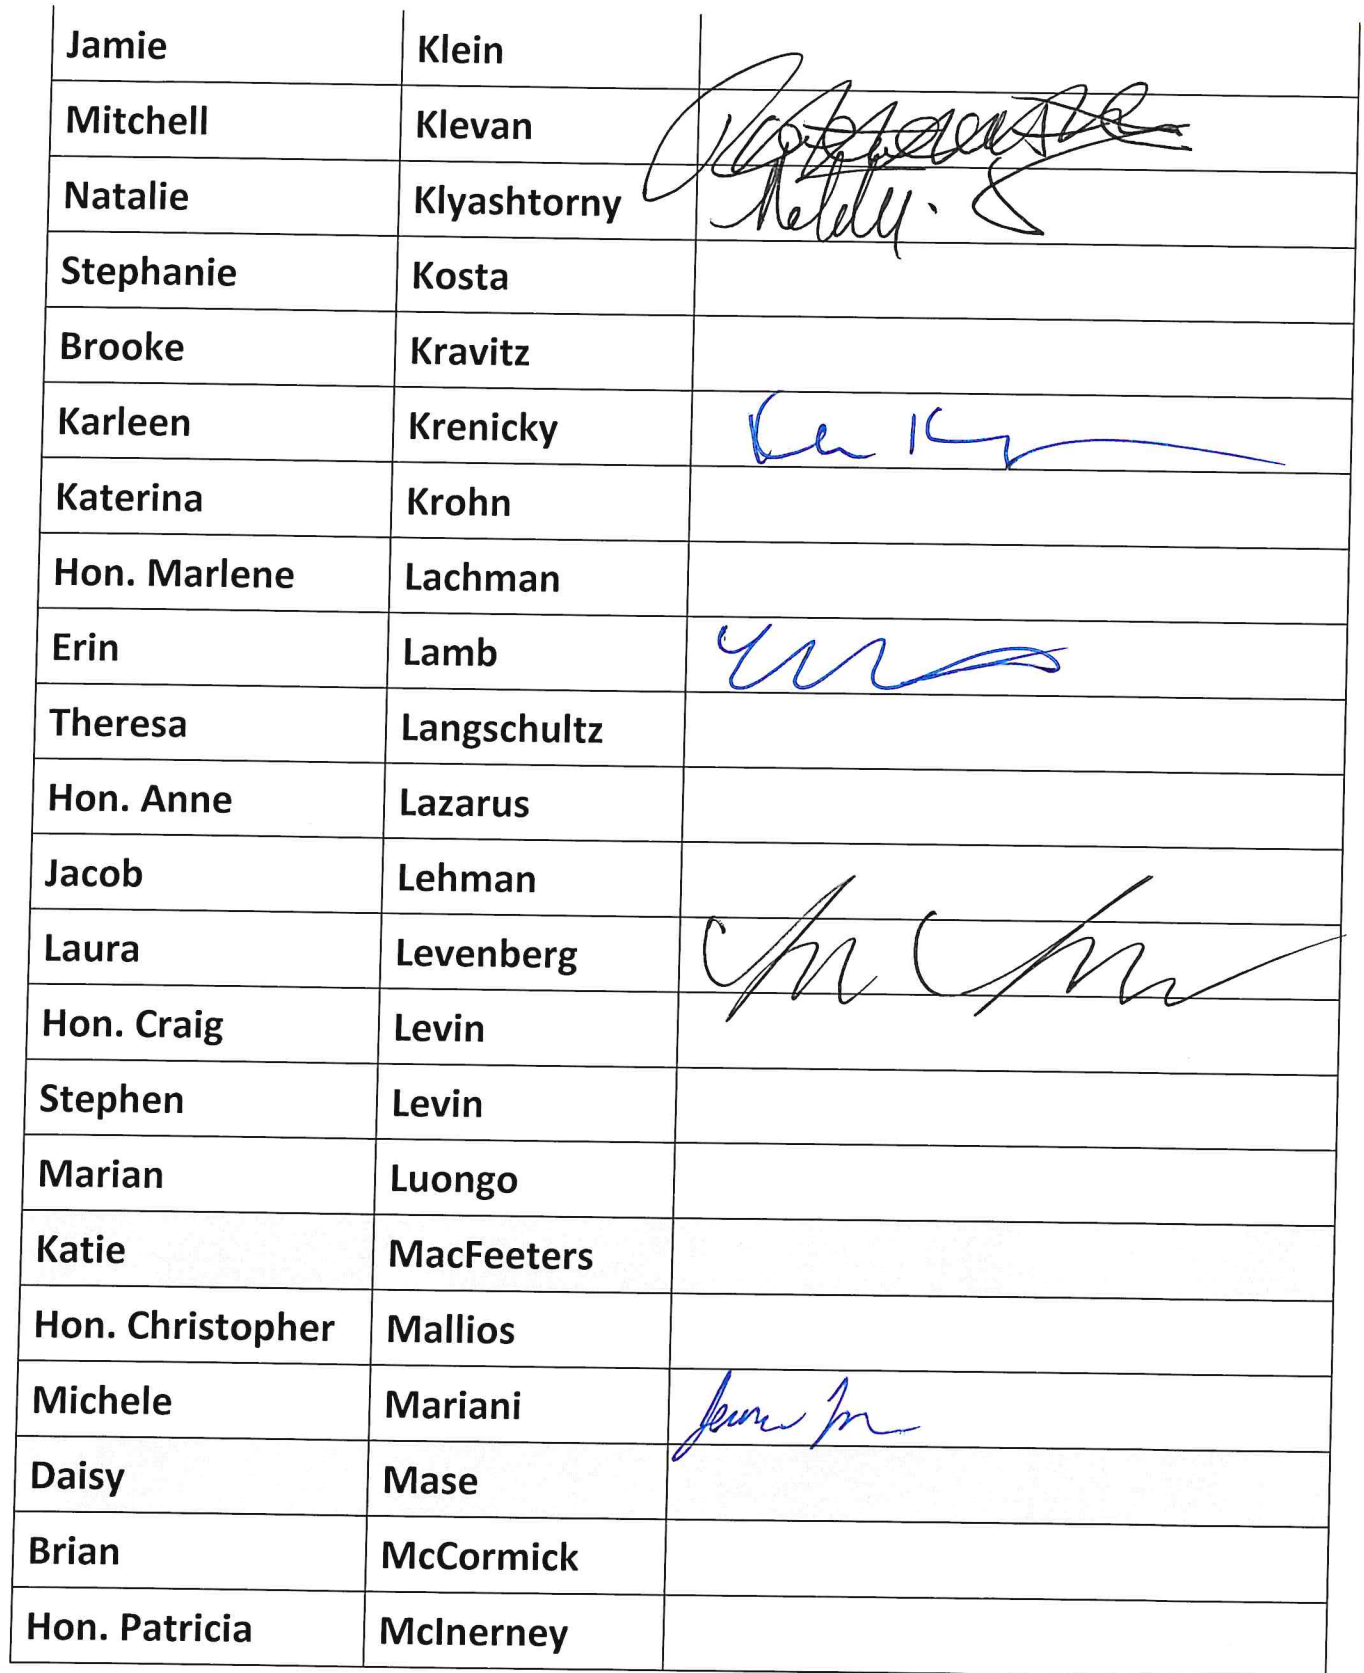 Jamie Klein
Mitchell Klevan
Natalie Klyashtorny
Stephanie Kosta
Brooke Kravitz
Karleen Krenicky
Katerina Krohn
Hon. Marlene Lachman
Erin Lamb
Theresa Langschultz
Hon. Anne Lazarus
Jacob Lehman
Laura Levenberg
Hon. Craig Levin
Stephen Levin
Marian Luongo
Katie MacFeeters
Hon. Christopher Mallios
Michele Mariani
Daisy Mase
Brian McCormick
Hon. Patricia McInerney